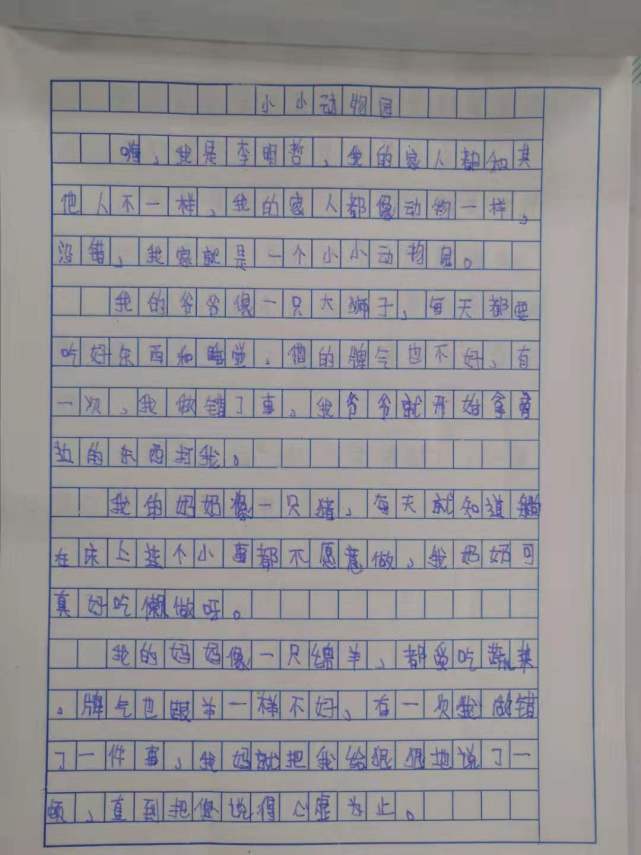 小小动物园
嗨，我是李明哲，我的家人都和其
他人不一样，我的家人都像动物一样，
没错，我家就是一个小小动物园。
我的爷爷像一只大狮子，每天都要
吃好东西和睡觉，他的脾气也不好，有
一次，我做错了事，我爷爷就开始拿旁
边的东西打我。
我的奶奶像一只猪，每天就知道躺
在床上，这个小事都不愿意做，我奶奶可
真好吃懒做呀。
我的妈妈像一只绵羊，都爱吃蔬菜
。脾气也跟羊一样不好，有一次我做错
了一件事，我妈就把我给狠狠地说了一
顿，直到把你说得心虚为止。